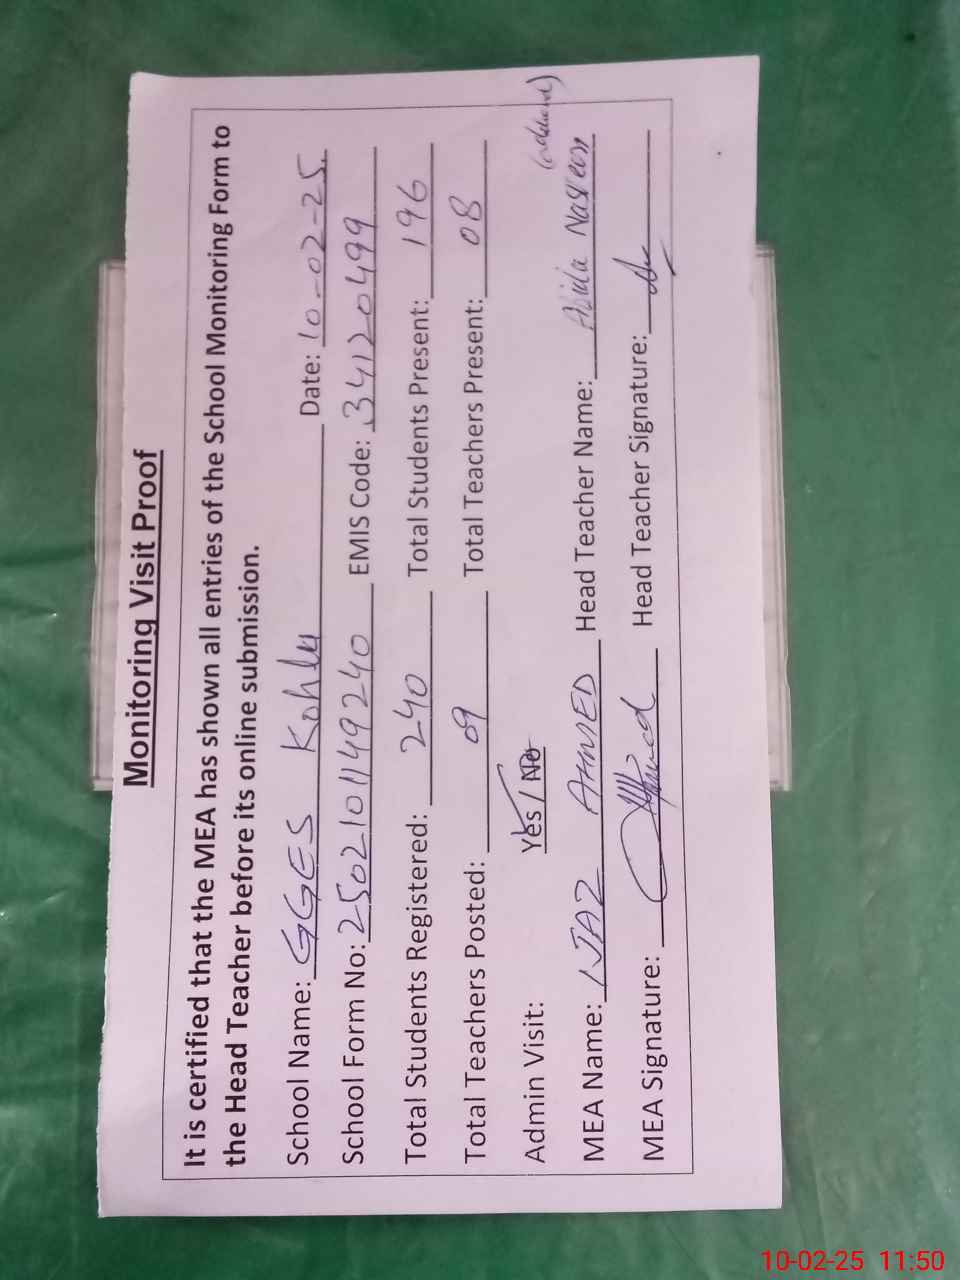 Monitoring Visit Proof
It is certified that the MEA has shown all entries of the School Monitoring Form to
the Head Teacher before its online submission.
School Name: GGES Kohly Date: 10-02-25
School Form No: 2502101149240 EMIS Code: 34120499
Total Students Registered: 240 Total Students Present: 196
Total Teachers Posted: 09 Total Teachers Present: 08
Admin Visit: Yes / No
MEA Name: IJAZ AHMED Head Teacher Name: Abida
MEA Signature: Head Teacher Signature:
10-02-25 11:50